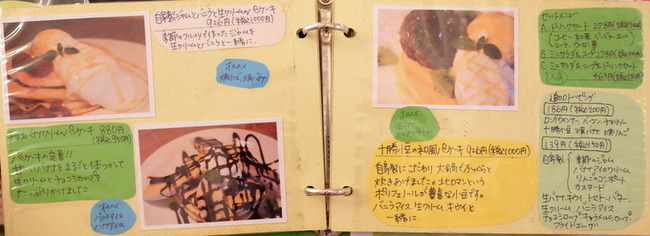 自家製ジャムとバニラと生クリームのPケーキ
926円(税込1000円)
季節のフルーツで作ったジャムを
生クリームとバニラと一緒に。
オススメ
チョコバナナクリームのPケーキ 880円
(税込950円)
Pケーキの定番!!
生クリームとチョコシロップを
たっぷりかけました
オススメ
バニラアイス
バナナアイス
オススメ
十勝小豆の和風Pケーキ 926円(税込1000円)
自家製にこだわり 大鍋でじっくりと
炊きあげました。コビロマンという
ポリフェノールが豊富な小豆です。
バニラアイス、生クリーム、キウイと
一緒に。
セットメニュー
A. ドリンクセット 278円
B. ミニサラダ、スープ 278円
C. ミニサラダ、スープ&ドリンクセット
463円
追加トッピング
186円(税込200円)
十勝小豆 焼バナナ 焼りんご
139円(税込150円)
自家製
季節のジャム
バナナアイスクリーム
りんごのコンポート
カスタード
生バナナ、キウイ、トマト、バター
生クリーム、バニラアイス
チョコシロップ、キャラメルシロップ
フライドエッグ